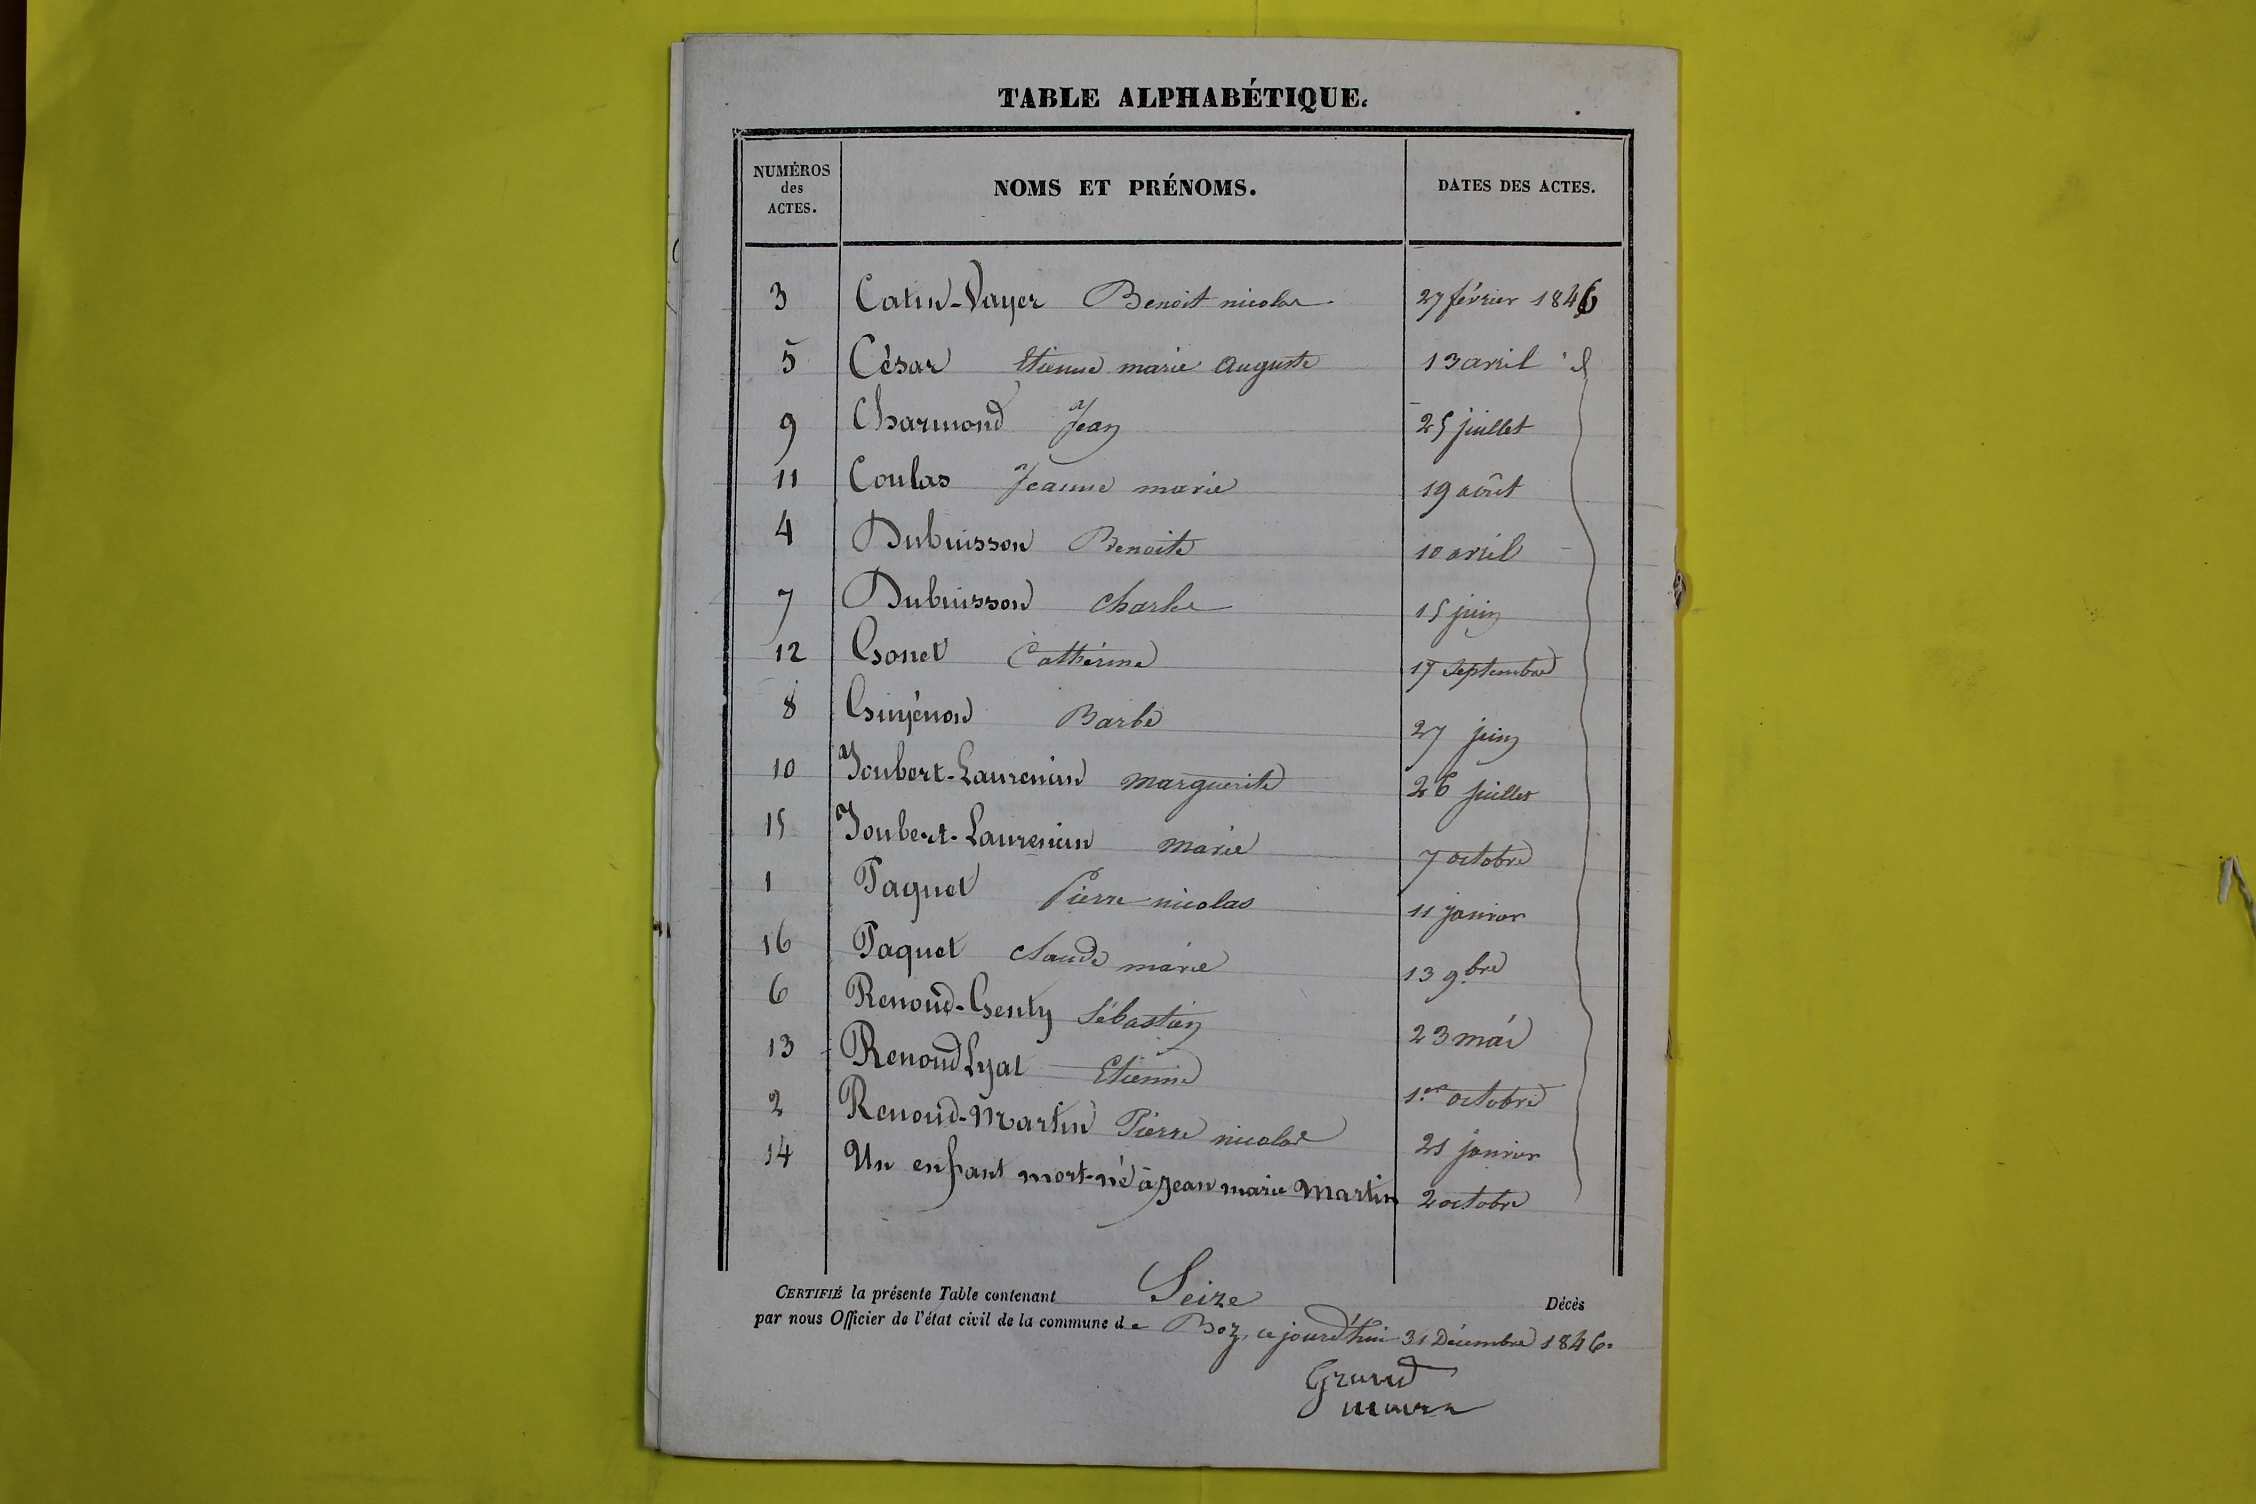 TABLE ALPHABÉTIQUE.
NUMÉROS des ACTES. NOMS ET PRÉNOMS. DATES DES ACTES.
3 Catin-Vayer Benoit nicolas 27 février 1846
5 César Etienne marie auguste 13 avril id
9 Charmond Jean 25 juillet
11 Coulas Jeanne marie 19 août
4 Dubuisson Benoite 10 avril
7 Dubuisson Charles 15 juin
12 Gonet Catherine 17 septembre
8 Guyénon Barbe 27 juin
10 Joubert-Laurencin marguerite 26 juillet
15 Joubert-Laurencin marie 7 octobre
1 Paquet Pierre nicolas 11 janvier
16 Paquet Claude marie 13 9bre
6 Renoud-Genty Sébastien 23 mai
13 Renoud Lyat Etienne 1er octobre
2 Renoud-Martin Pierre nicolas 21 janvier
14 Un enfant mort-né à Jean marie Martin 2 octobre
CERTIFIÉ la présente Table contenant Seize Décès
par nous Officier de l'état civil de la commune de Boz, ce jourd'hui 31 Décembre 1846.